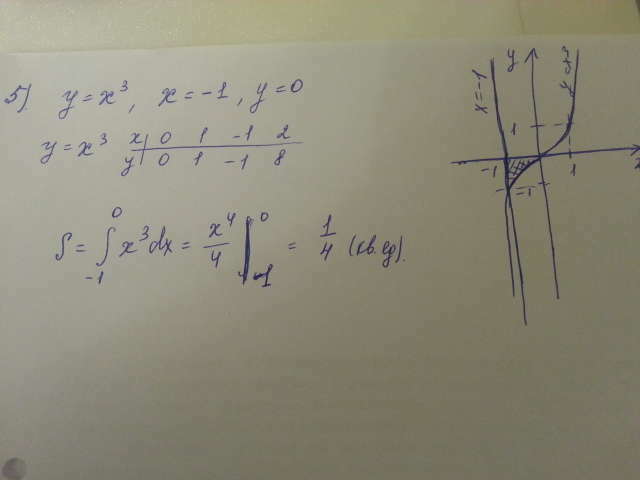 5) y = x³, x = -1, y = 0
y = x³ x | 0 1 -1 2
y | 0 1 -1 8
S = ∫₋₁⁰ x³dx = x⁴/4 |₋₁⁰ = 1/4 (кв.ед).
x = -1
y
y = x³
1
-1
1
-1